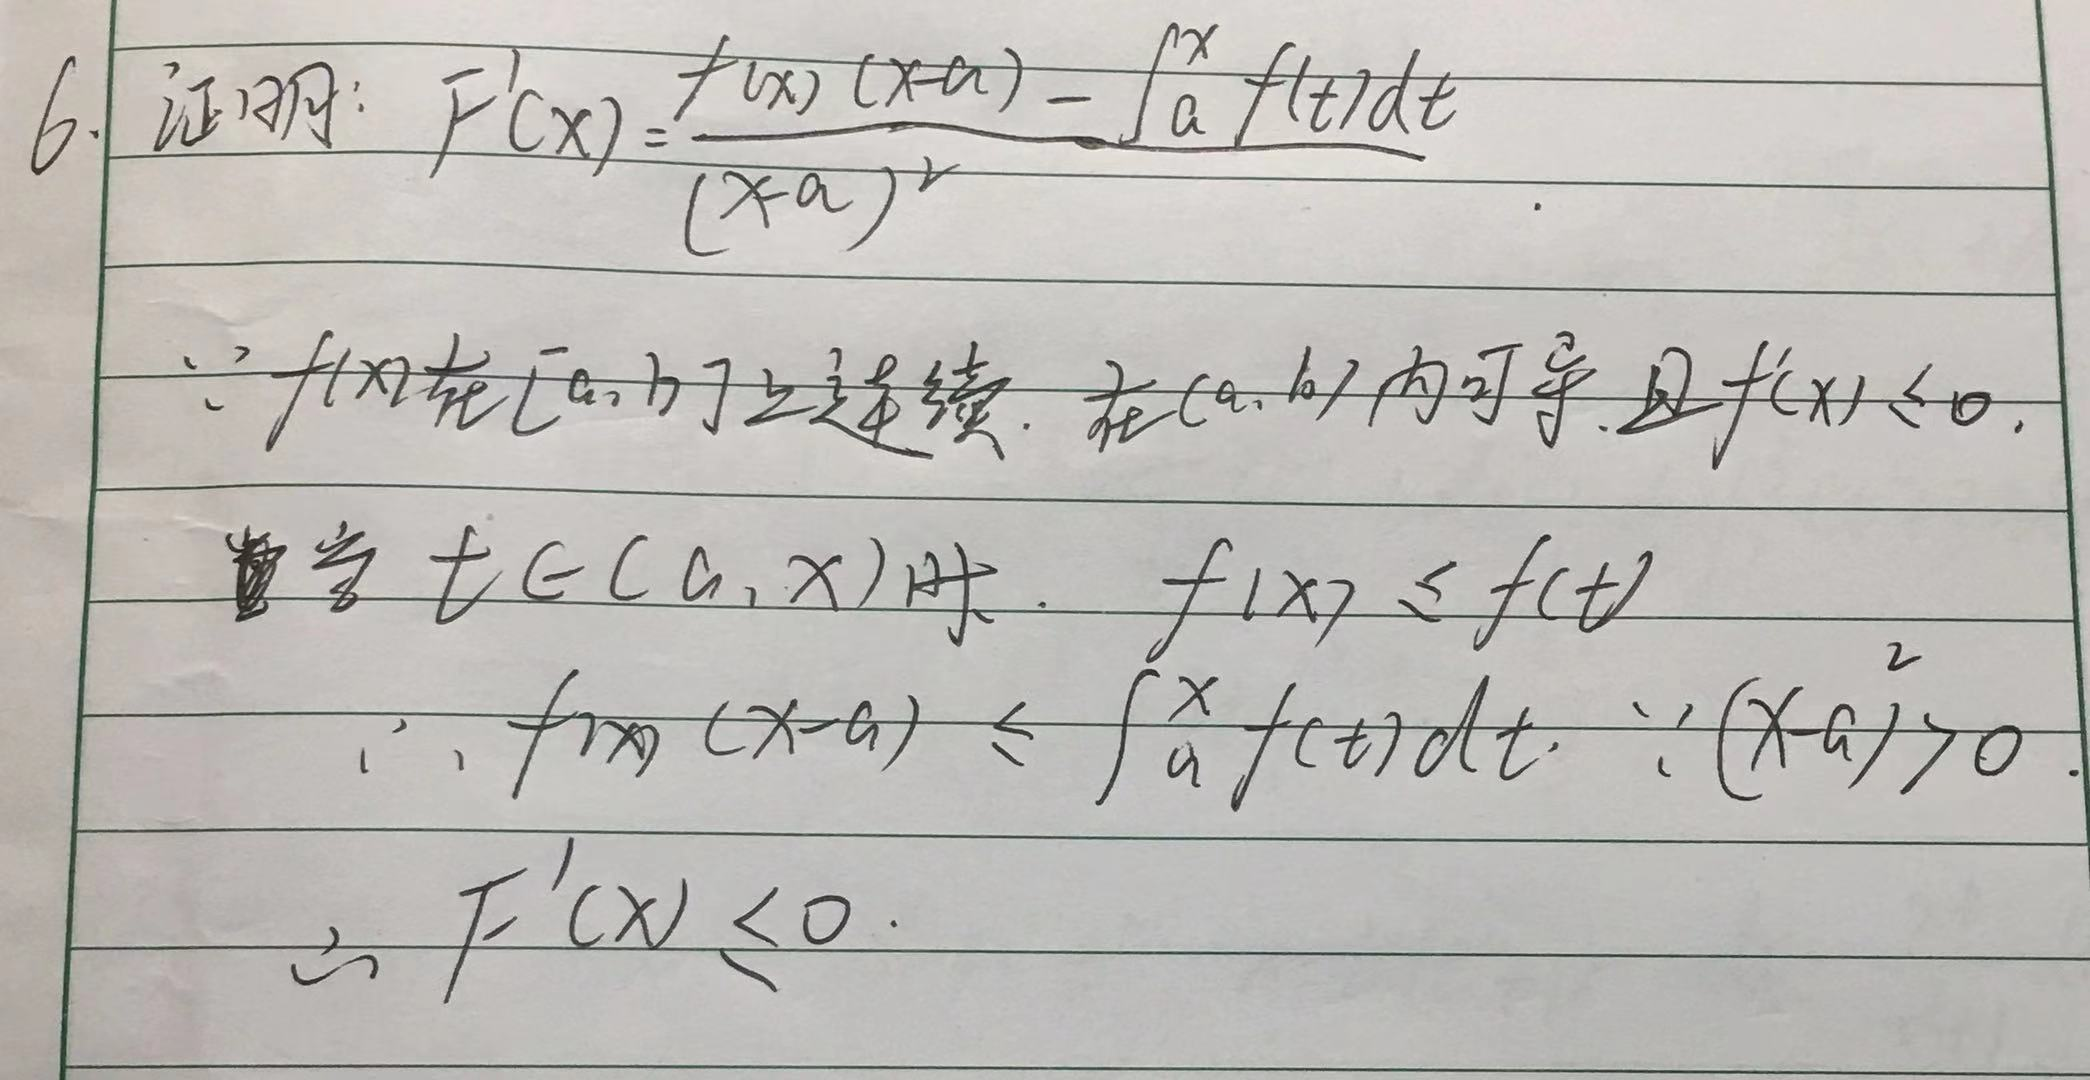 6. 证明: F'(x) = \frac{f(x)(x-a) - \int_a^x f(t)dt}{(x-a)^2}
∵ f(x)在[a,b]上连续. 在(a,b)内可导.且f'(x)≤0.
当 t∈(a,x)时. f(x)≤f(t)
∴ f(x)(x-a) ≤ \int_a^x f(t)dt. ∵(x-a)^2>0.
∴ F'(x)≤0.